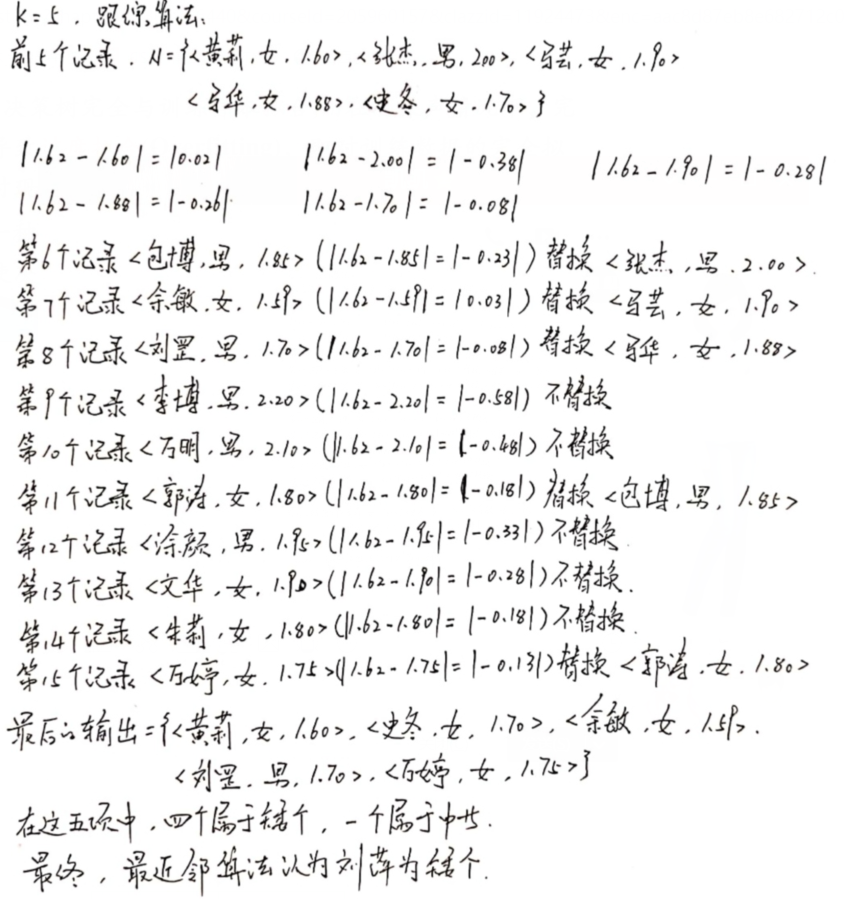 K=5，跟踪算法:
前5个记录，N={<黄莉,女,1.60>,<张杰,男,2.00>,<马芸,女,1.90>
<马华,女,1.88>,<史冬,女,1.70>}
|1.62-1.60|=|0.02| |1.62-2.00|=|-0.38| |1.62-1.90|=|-0.28|
|1.62-1.88|=|-0.26| |1.62-1.70|=|-0.08|
第6个记录<包博,男,1.85>(|1.62-1.85|=|-0.23|)替换<张杰,男,2.00>.
第7个记录<余敏,女,1.59>(|1.62-1.59|=|0.03|)替换<马芸,女,1.90>
第8个记录<刘罡,男,1.70>(|1.62-1.70|=|-0.08|)替换<马华,女,1.88>
第9个记录<李博,男,2.20>(|1.62-2.20|=|-0.58|)不替换
第10个记录<万明,男,2.10>(|1.62-2.10|=|-0.48|)不替换
第11个记录<郭涛,女,1.80>(|1.62-1.80|=|-0.18|)替换<包博,男,1.85>
第12个记录<涂颜,男,1.95>(|1.62-1.95|=|-0.33|)不替换.
第13个记录<文华,女,1.90>(|1.62-1.90|=|-0.28|)不替换.
第14个记录<朱莉,女,1.80>(|1.62-1.80|=|-0.18|)不替换.
第15个记录<万婷,女,1.75>(|1.62-1.75|=|-0.13|)替换<郭涛,女,1.80>
最后的输出={<黄莉,女,1.60>,<史冬,女,1.70>,<余敏,女,1.59>.
<刘罡,男,1.70>,<万婷,女,1.75>}
在这五项中,四个属于矮个,一个属于中等.
最终,最近邻算法认为刘萍为矮个.